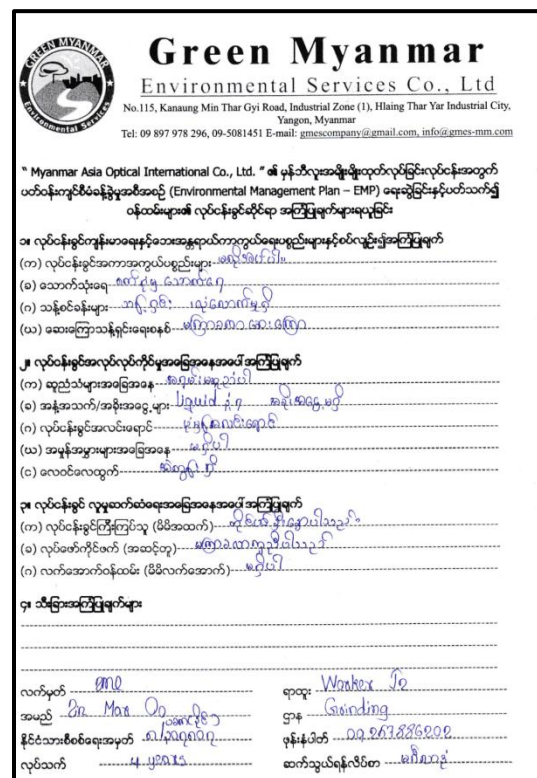 GREEN MYANMAR
Environmental Services
Green Myanmar
Environmental Services Co., Ltd
No.115, Kanaung Min Thar Gyi Road, Industrial Zone (1), Hlaing Thar Yar Industrial City,
Yangon, Myanmar
Tel: 09 897 978 296, 09-5081451 E-mail: gmescompany@gmail.com, info@gmes-mm.com
" Myanmar Asia Optical International Co., Ltd. " ၏ မှန်ဘီလူးအမျိုးမျိုးထုတ်လုပ်ခြင်းလုပ်ငန်းအတွက်
ပတ်ဝန်းကျင်စီမံခန့်ခွဲမှုအစီအစဉ် (Environmental Management Plan – EMP) ရေးဆွဲခြင်းနှင့်ပတ်သက်၍
ဝန်ထမ်းများ၏ လုပ်ငန်းခွင်ဆိုင်ရာ အကြံပြုချက်များရယူခြင်း
၁။ လုပ်ငန်းခွင်ကျန်းမာရေးနှင့်ဘေးအန္တရာယ်ကာကွယ်ရေးပစ္စည်းများနှင့်စပ်လျဉ်း၍အကြံပြုချက်
(က) လုပ်ငန်းခွင်အကာအကွယ်ပစ္စည်းများ မလိုအပ်ပါ။
(ခ) သောက်သုံးရေ စက်ရုံမှ သောက်ရေ
(ဂ) သန့်စင်ခန်းများ လုံလောက်မှုရှိ
(ဃ) ဆေးကြောသန့်ရှင်းရေးစနစ် မကြာခဏ ဆေးကြော
၂။ လုပ်ငန်းခွင်အလုပ်လုပ်ကိုင်မှုအခြေအနေအပေါ် အကြံပြုချက်
(က) ဆူညံသံများအခြေအနေ အရမ်းမဆူညံပါ
(ခ) အနံ့အသက်/အခိုးအငွေ့များ Liquid နံ့ရ အခိုးအငွေ့မရှိ
(ဂ) လုပ်ငန်းခွင်အလင်းရောင် ပုံမှန်အလင်းရောင်
(ဃ) အမှုန်အမွှားများအခြေအနေ မရှိပါ
(င) လေဝင်လေထွက် ရှိ
၃။ လုပ်ငန်းခွင် လူမှုဆက်ဆံရေးအခြေအနေအပေါ် အကြံပြုချက်
(က) လုပ်ငန်းခွင်ကြီးကြပ်သူ (မိမိအထက်)
(ခ) လုပ်ဖော်ကိုင်ဖက် (အဆင့်တူ) မကြာခဏကူညီပါသည်
(ဂ) လက်အောက်ဝန်ထမ်း (မိမိလက်အောက်) မရှိပါ
၄။ သီးခြားအကြံပြုချက်များ
လက်မှတ်
ရာထူး Worker J2
အမည် Zin Mar Oo
ဌာန Grinding
နိုင်ငံသားစိစစ်ရေးအမှတ်
ဖုန်းနံပါတ် 09 267886202
လုပ်သက် 4 years
ဆက်သွယ်ရန်လိပ်စာ